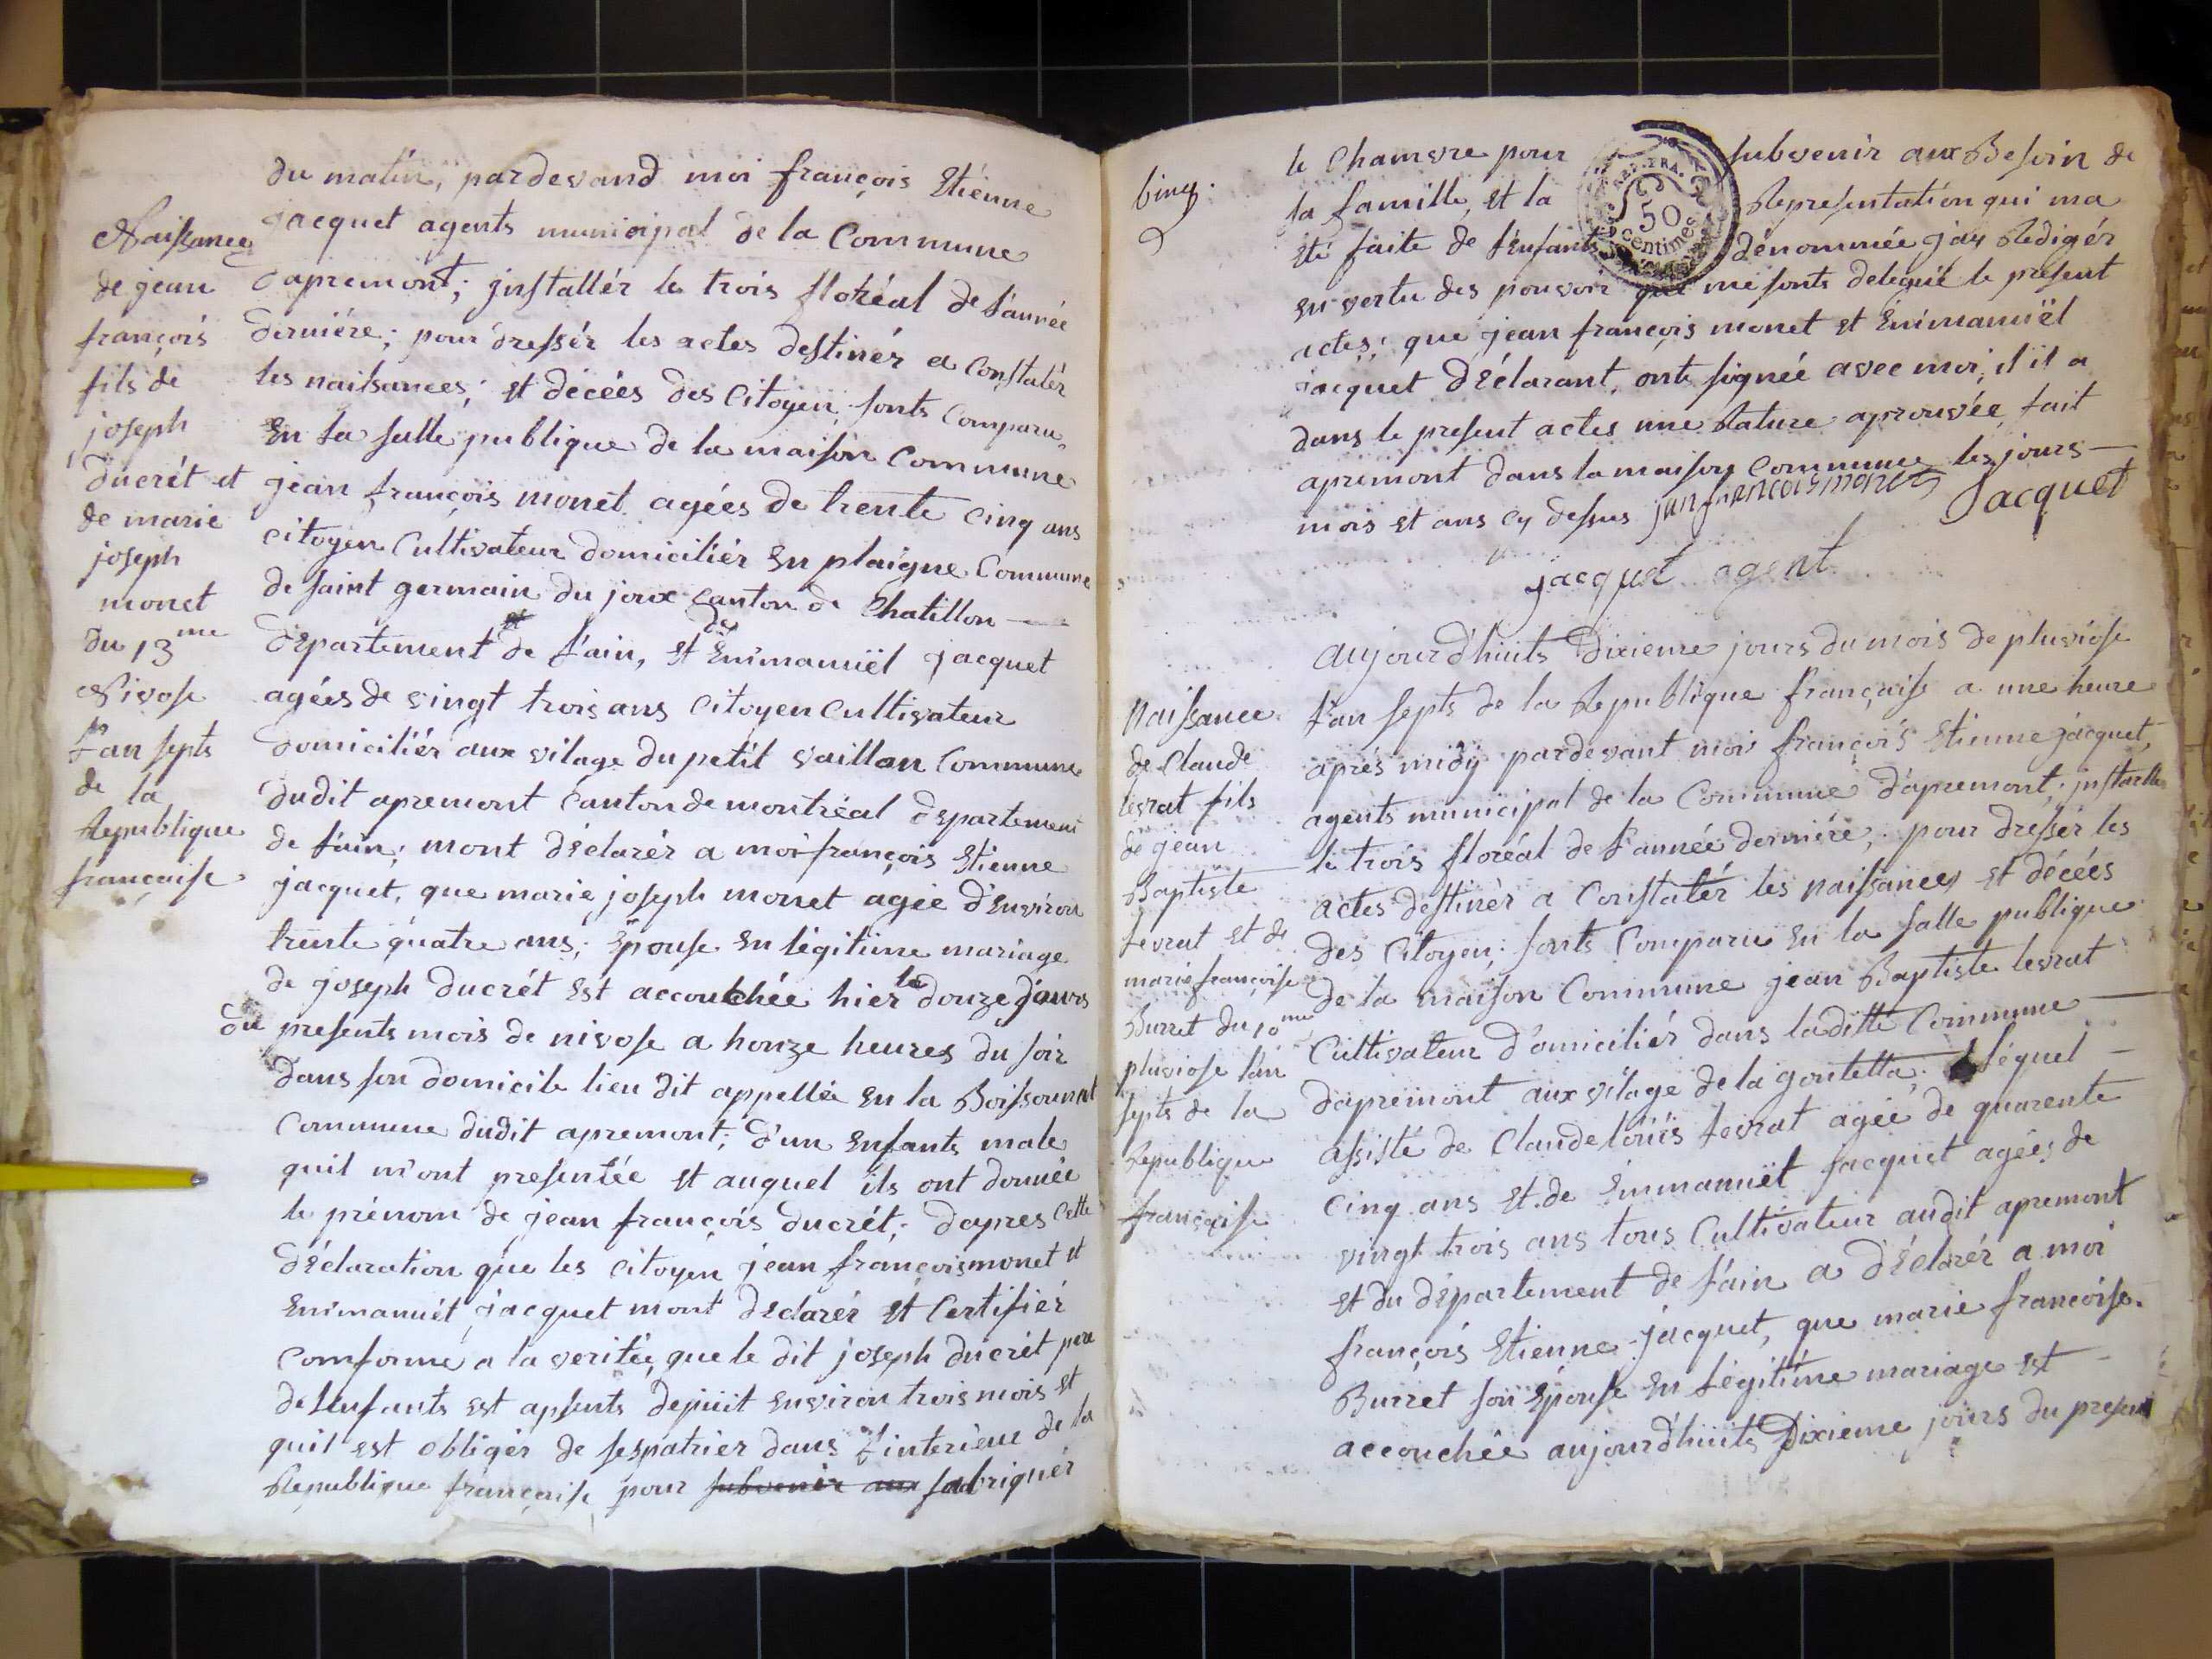 du matin, pardevand moi françois Etienne
jacquet agents municipal de la Commune
dapremont; jnstallér le trois floréal de l'année
derniére; pour dressér les actes destinér a Constatér
les naissances; et décées des Citoyen sonts Comparu
En la salle publique de la maison Commune
jean françois monet agées de trente cinq ans
citoyen Cultivateur domiciliér En plaigne Commune
de saint germain du joux Canton de Chatillon
département de l'ain, et de Emmanuël jacquet
agées de vingt trois ans Citoyen Cultivateur
domiciliér aux vilage du petit vaillon Commune
dudit apremont Canton de montréal département
de l'ain; mont déclarér a moi françois Etienne
jacquet, que marie joseph monet agée d'Environ
trente quatre ans; Epouse En légitime mariage
de joseph ducrét Est accouchée hier le douze jours
du presents mois de nivose a honze heures du soir
dans son domicile lieu dit appellée En la Boissounat
Commune dudit apremont; d'un Enfants male
quil m'ont presentée et auquel ils ont donnée
le prénom de jean françois ducrét; dapres Cette
déclaration que les citoyen jean françois monet et
Emmanuél jacquet mont declarér et Certifiér
Comforme a la veritée, que le dit joseph ducrét pere
de lenfants est apsents depuit Environ trois mois et
quil est obligér de sespatrier dans l'interieur de la
Republique française pour subvenir aux fabriquér
Naissance
de jean
françois
fils de
joseph
ducrét et
de marie
joseph
monet
du 13me
Nivose
l'an septs
de la
Republique
française
Cinq.
le Chamvre pour subvenir aux Besoin de
sa famille, et la Representation qui ma
Eté faite de l'Enfants dénommée jay Redigér
En vertu des pouvoir qui me sonts delegué le present
actes; que jean françois monet et Emmanuël
jacquet déclarant, onts signée avec moi, il it a
dans le present actes une Rature aprouvée, fait
apremont dans la maison Commune les jours
mois et ans cy dessus jan francois monet Jacquet
jacquet agent
aujourdhuits Dixieme jours du mois de pluviose
l'an septs de la Republique française a une heure
aprés midy pardevant moi françois Etienne jacquet,
agents municipal de la Commune dapremont; jnstallé
le trois floréal de l'année derniére; pour dressér les
actes destinér a Constatér les naissances et décées
des Citoyen; sonts Comparu En la salle publique
de la maison Commune jean Baptiste levrat
Cultivateur domiciliér dans laditte Commune
dapremont aux vilage de la goutetta; léquel
assisté de Claude loüis levrat agée de quarente
Cinq ans et de Emmanuël jacquet agées de
vingt trois ans tous Cultivateur audit apremont
et du département de l'ain a déclarér a moi
françois Etienne jacquet, que marie françoise
Burret son Epouse En légitime mariage est
accouchée aujourdhuits Dixieme jours du present
Naissance
de Claude
levrat fils
de jean
Baptiste
levrat et de
marie françoise
Burret du 10me
pluviose l'an
septs de la
Republique
française
REP. FRA.
50
Centimes